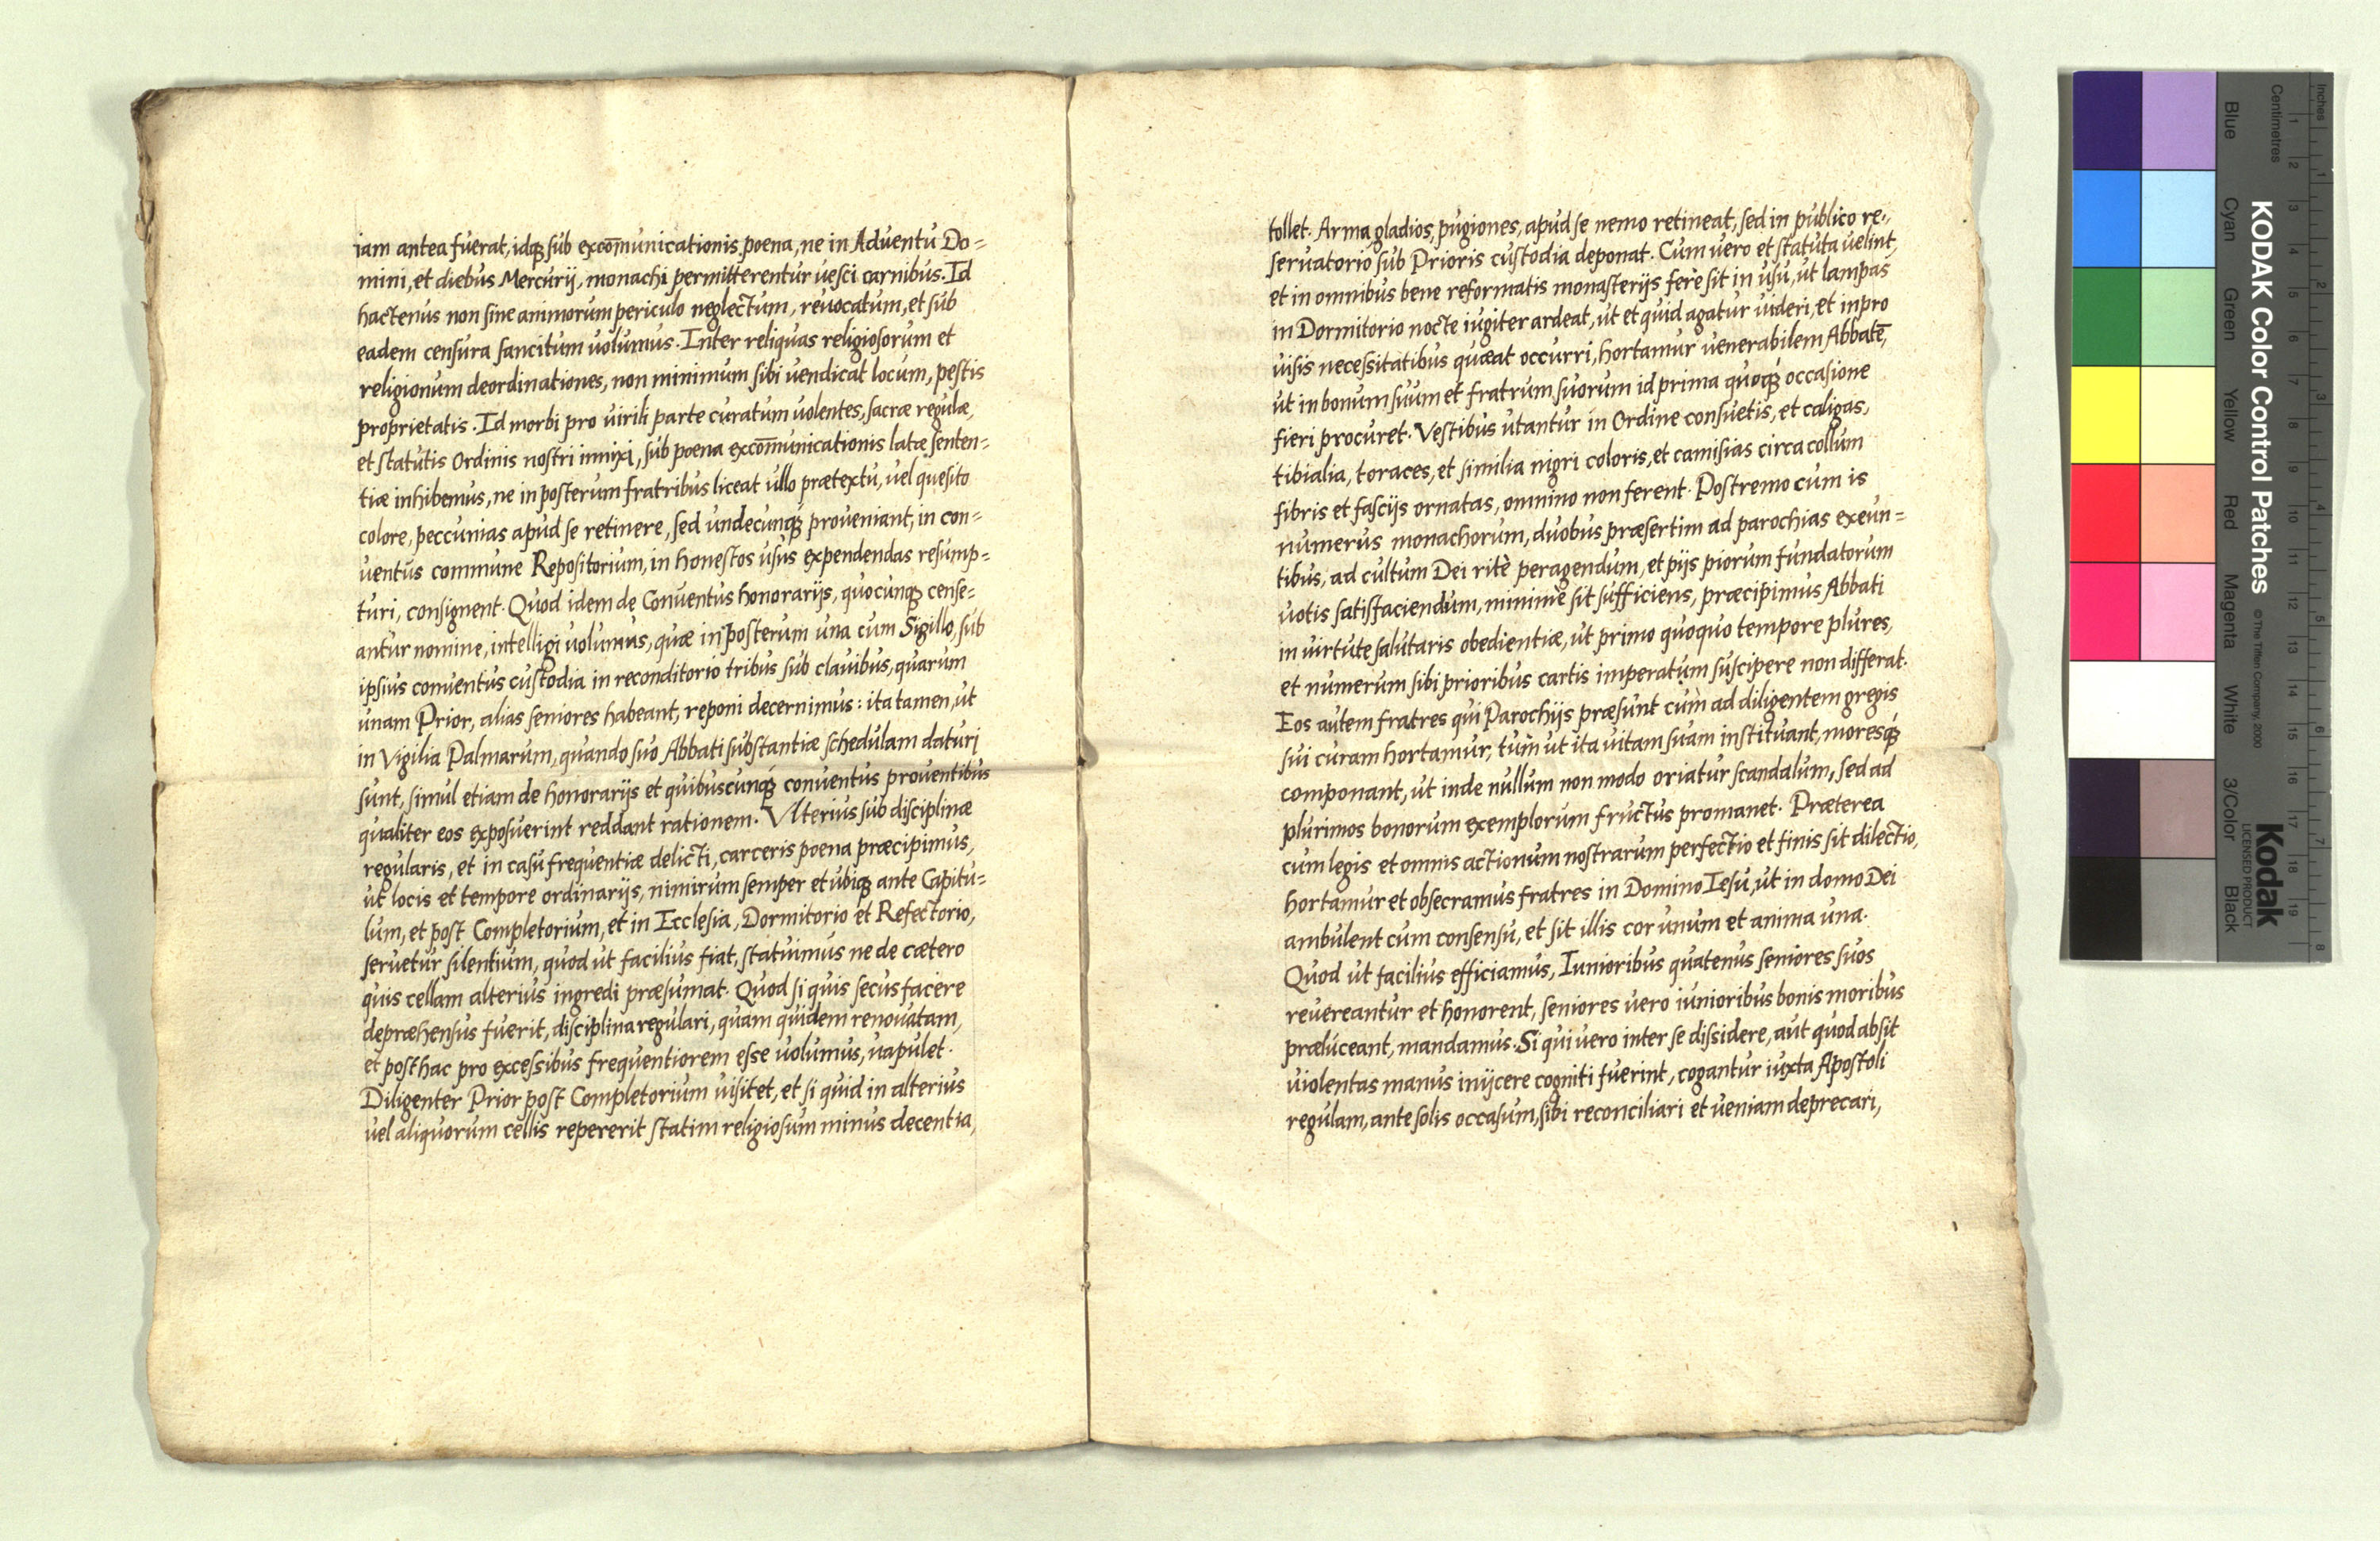 iam antea fuerat, idq; sub excom̄unicationis poena, ne in Aduentu Do=
mini, et diebus Mercurij, monachi permitterentur uesci carnibus. Id
hactenus non sine animorum periculo neglectum, reuocatum, et sub
eadem censura sancitum uolumus. Inter reliquas religiosorum et
religionum deordinationes, non minimum sibi uendicat locum, pestis
proprietatis. Id morbi pro uirili parte curatum uolentes, sacræ regulæ,
et statutis Ordinis nostri innixi, sub poena excom̄unicationis latæ senten=
tiæ inhibemus, ne in posterum fratribus liceat ullo prætextu, uel quesito
colore, peccunias apud se retinere, sed undecunq; proueniant, in con=
uentus commune Repositorium, in honestos usus expendendas resump=
turi, consignent. Quod idem de Conuentus honorarijs, quocunq; cense=
antur nomine, intelligi uolumus, quæ in posterum una cum Sigillo, sub
ipsius conuentus custodia in reconditorio tribus sub clauibus, quarum
unam Prior, alias seniores habeant, reponi decernimus: ita tamen, ut
in Vigilia Palmarum, quando suo Abbati substantiæ schedulam daturi
sunt, simul etiam de honorarijs et quibuscunq; conuentus prouentibus
qualiter eos exposuerint reddant rationem. Vlterius sub disciplinæ
regularis, et in casu frequentiæ delicti, carceris poena præcipimus,
ut locis et tempore ordinarijs, nimirum semper et ubiq; ante Capitu=
lum, et post Completorium, et in Ecclesia, Dormitorio et Refectorio,
seruetur silentium, quod ut facilius fiat, statuimus ne de cætero
quis cellam alterius ingredi præsumat. Quod si quis secus facere
depræhensus fuerit, disciplina regulari, quam quidem renouatam,
et posthac pro excessibus frequentiorem esse uolumus, uapulet.
Diligenter Prior post Completorium uisitet, et si quid in alterius
uel aliquorum cellis repererit statim religiosum minus decentia,
tollet. Arma, gladios, pugiones, apud se nemo retineat, sed in publico re=
seruatorio sub Prioris custodia deponat. Cum uero et statuta uelint,
et in omnibus bene reformatis monasterijs ferè sit in usu, ut lampas
in Dormitorio nocte iugiter ardeat, ut et quid agatur uideri, et inpro
uisis necessitatibus quæat occurri, hortamur uenerabilem Abbatē,
ut in bonum suum et fratrum suorum id prima quoq; occasione
fieri procuret. Vestibus utantur in Ordine consuetis, et caligas,
tibialia, toraces, et similia nigri coloris, et camisias circa collum
fibris et fascijs ornatas, omnino non ferent. Postremo cum is
numerus monachorum, duobus præsertim ad parochias exeun=
tibus, ad cultum Dei ritè peragendum, et pijs piorum fundatorum
uotis satisfaciendum, minimè sit sufficiens, præcipimus Abbati
in uirtute salutaris obedientiæ, ut primo quoquo tempore plures,
et numerum sibi prioribus cartis imperatum suscipere non differat.
Eos autem fratres qui Parochijs præsunt cùm ad diligentem gregis
sui curam hortamur, tùm ut ita uitam suam instituant, moresq;
componant, ut inde nullum non modo oriatur scandalum, sed ad
plurimos bonorum exemplorum fructus promanet. Præterea
cum legis et omnis actionum nostrarum perfectio et finis sit dilectio,
hortamur et obsecramus fratres in Domino Iesu, ut in domo Dei
ambulent cum consensu, et sit illis cor unum et anima una.
Quod ut facilius efficiamus, Iunioribus quatenus seniores suos
reuereantur et honorent, seniores uero iunioribus bonis moribus
præluceant, mandamus. Si qui uero inter se dissidere, aut quod absit
uiolentas manus inijcere cogniti fuerint, cogantur iuxta Apostoli
regulam, ante solis occasum, sibi reconciliari et ueniam deprecari,
KODAK Color Control Patches
© The Tiffen Company, 2000
Kodak
LICENSED PRODUCT
Blue
Cyan
Green
Yellow
Red
Magenta
White
3/Color
Black
Inches
1 2 3 4 5 6 7 8
Centimetres
1 2 3 4 5 6 7 8 9 10 11 12 13 14 15 16 17 18 19